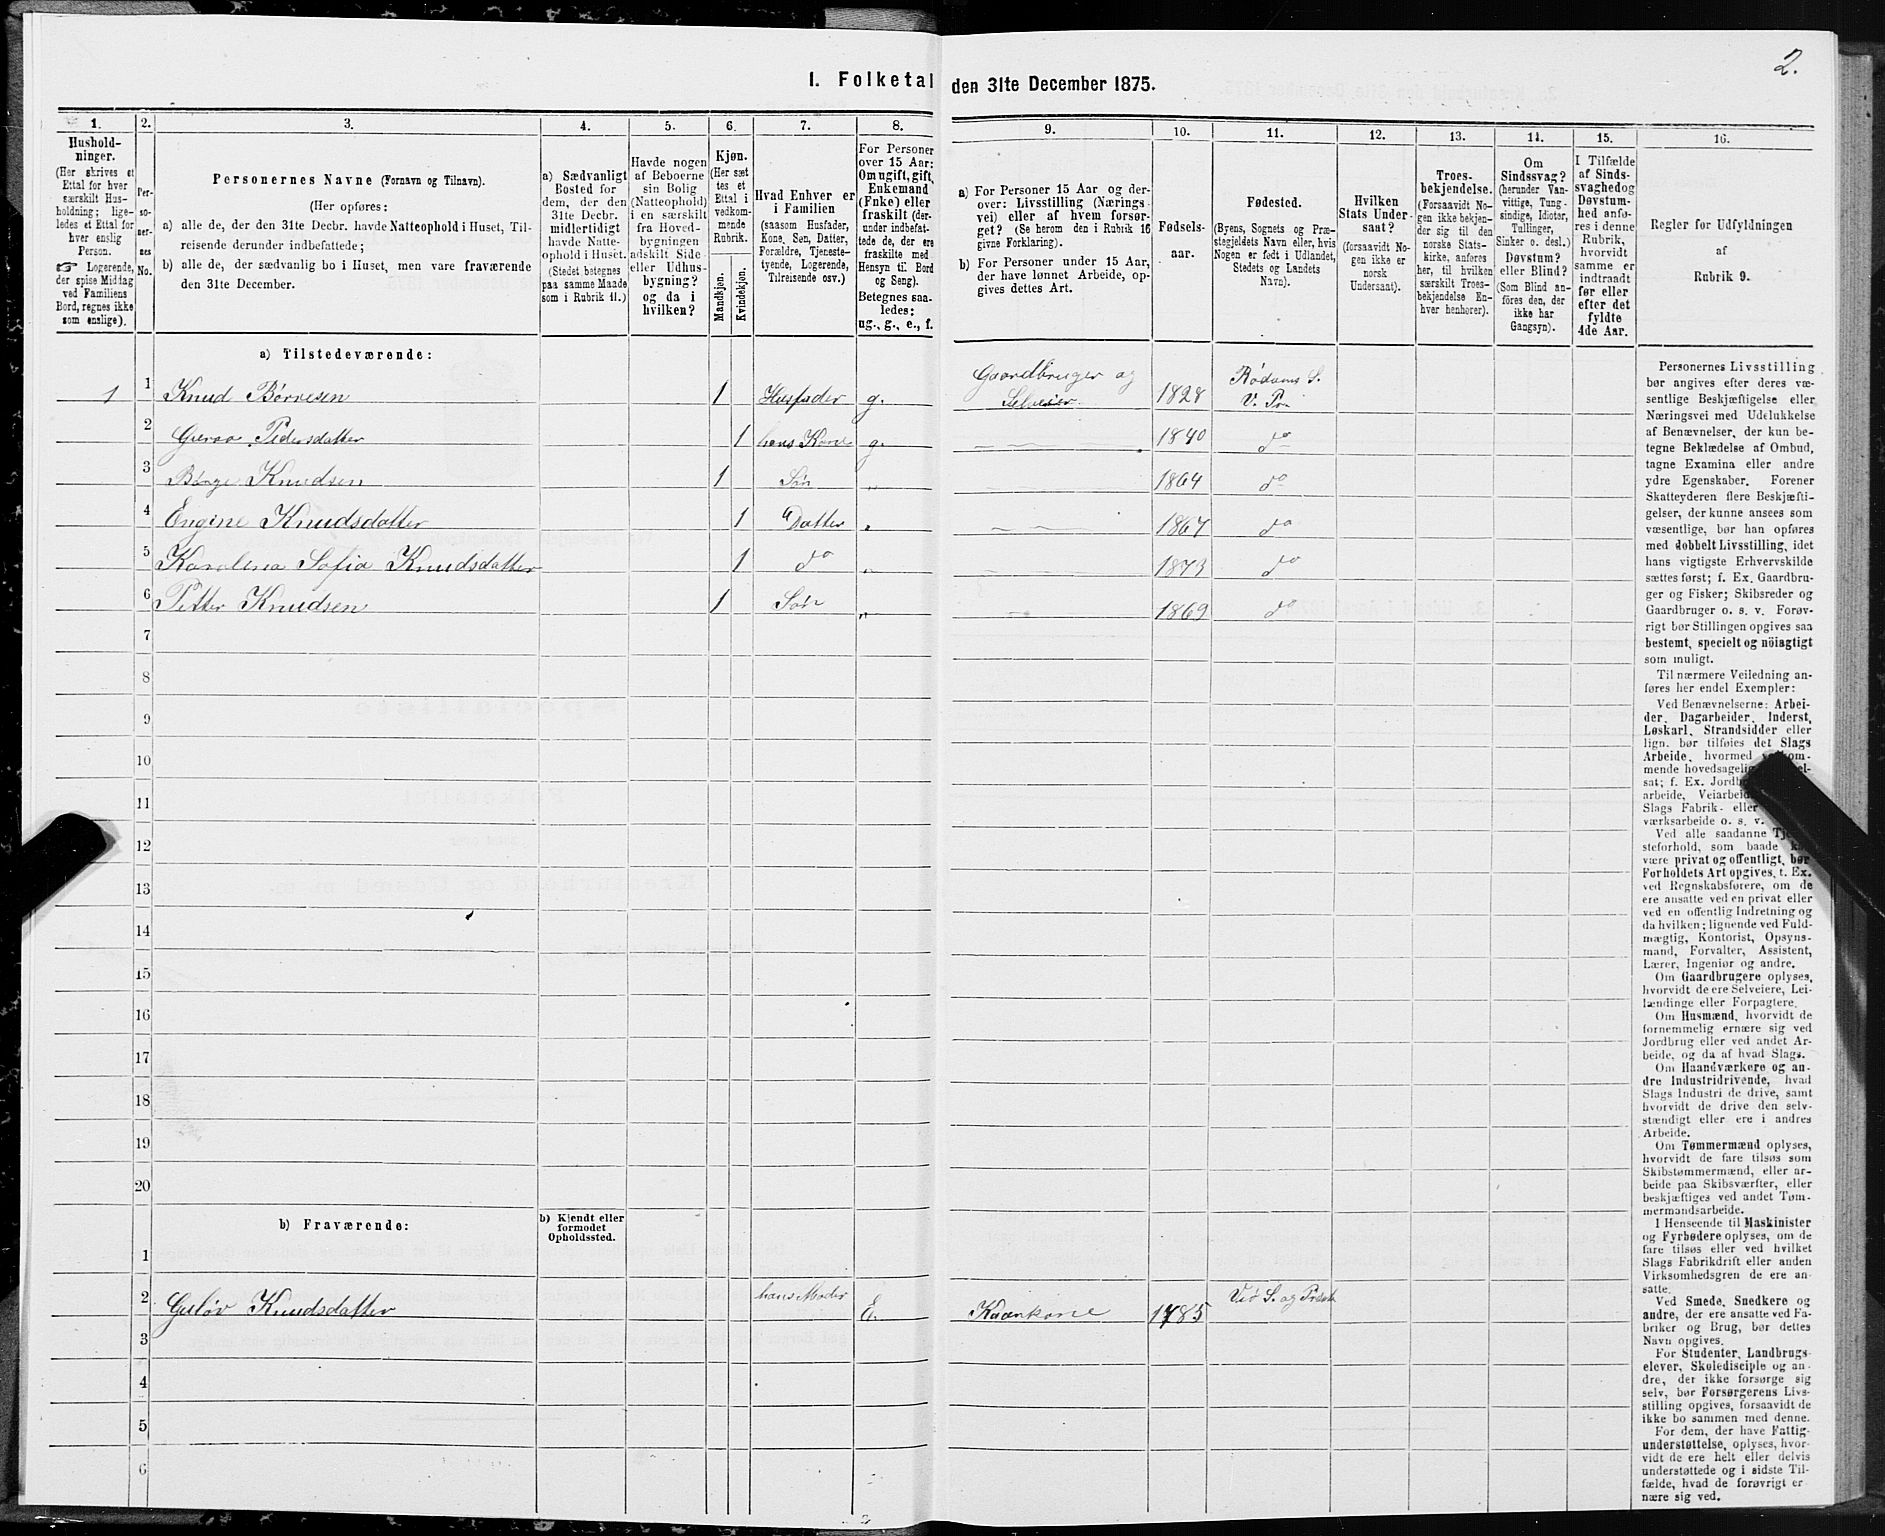 2.
I. Folketal den 31te December 1875.
1.
Hushold-
ninger.
(Her skrives et
Ettal for hver
særskilt Hus-
holdning; lige-
ledes et Ettal for
hver enslig
Person.
☞ Logerende,
der spise Middag
ved Familiens
Bord, regnes ikke
som enslige).
2.
Per-
so-
ner-
nes
No.
3.
Personernes Navne (Fornavn og Tilnavn).
(Her opføres:
a) alle de, der den 31te Decbr. havde Natteophold i Huset, Til-
reisende derunder indbefattede;
b) alle de, der sædvanlig bo i Huset, men vare fraværende
den 31te December.
4.
a) Sædvanligt
Bosted for
dem, der den
31te Decbr.
midlertidigt
havde Natte-
ophold i Huset.
(Stedet betegnes
paa samme Maade
som i Rubrik 11.)
5.
Havde nogen
af Beboerne
sin Bolig
(Natteophold)
i en særskilt
fra Hoved-
bygningen
adskilt Side-
eller Udhus-
bygning?
og da i
hvilken?
6.
Kjøn.
(Her sæt-
tes et
Ettal i
vedkom-
mende
Rubrik.
Mandkjøn.
Kvindekjøn.
7.
Hvad Enhver er
i Familien
(saasom Husfader,
Kone, Søn, Datter,
Forældre, Tjeneste-
tyende, Logerende,
Tilreisende osv.)
8.
For Personer
over 15 Aar:
Om ugift, gift,
Enkemand
(Enke) eller
fraskilt (der-
under indbefat-
tede de, der ere
fraskilte med
Hensyn til Bord
og Seng).
Betegnes saa-
ledes:
ug., g., e., f.
9.
a) For Personer 15 Aar og der-
over: Livsstilling (Nærings-
vei) eller af hvem forsør-
get? (Se herom den i Rubrik 16
givne Forklaring).
b) For Personer under 15 Aar,
der have lønnet Arbeide, op-
gives dettes Art.
10.
Fødsels-
aar.
11.
Fødested.
(Byens, Sognets og Præ-
stegjeldets Navn eller, hvis
Nogen er født i Udlandet,
Stedets og Landets
Navn).
12.
Hvilken
Stats Under-
saat?
(forsaavidt No-
gen ikke er
norsk
Undersaat).
13.
Troes-
bekjendelse.
(Forsaavidt No-
gen ikke bekjen-
der sig til den
norske Stats-
kirke, anføres
her, til hvilken
særskilt Troes-
bekjendelse En-
hver henhører).
14.
Om
Sindssvag?
(herunder Van-
vittige, Tung-
sindige, Idioter,
Tullinger,
Sinker o. desl.)
Døvstum?
eller Blind?
(Som Blind an-
føres den, der
ikke har
Gangsyn).
15.
I Tilfælde
af Sinds-
svaghed og
Døvstum-
hed anfø-
res i denne
Rubrik,
hvorvidt
samme er
indtraadt
før eller
efter det
fyldte
4de Aar.
16.
Regler for Udfyldningen
af
Rubrik 9.
a) Tilstedeværende:
1 1 Knud Børresen 1 Husfader g. Gaardbruger og Selveier 1828 Rødøens S. V. Pr
2 Pedersdatter 1 hans Kone g. 1840 do
3 Børge Knudsen 1 Søn „ 1864 do
4 Engine Knudsdatter 1 Datter „ 1867 do
5 Karolena Sofia Knudsdatter 1 do „ 1873 do
6 Petter Knudsen 1 Søn „ 1869 do
7
8
9
10
11
12
13
14
15
16
17
18
19
20
b) Fraværende:
b) Kjendt eller
formodet
Opholdssted.
1
2 Guløv Knudsdatter hans Moder E. Kaarkone 1785
3
4
5
6
Personernes Livsstilling
bør angives efter deres væ-
sentlige Beskjæftigelse eller
Næringsvei med Udelukkelse
af Benævnelser, der kun be-
tegne Beklædelse af Ombud,
tagne Examina eller andre
ydre Egenskaber. Forener
Skatteyderen flere Beskjæfti-
gelser, der kunne ansees som
væsentlige, bør han opføres
med dobbelt Livsstilling, idet
hans vigtigste Erhvervskilde
sættes først; f. Ex. Gaardbru-
ger og Fisker; Skibsreder og
Gaardbruger o. s. v. Forøv-
rigt bør Stillingen opgives saa
bestemt, specielt og nöiagtigt
som muligt.
Til nærmere Veiledning an-
føres her endel Exempler:
Ved Benævnelserne: Arbei-
der, Dagarbeider, Inderst,
Løskarl, Strandsidder eller
lign. bør tilføies det Slags
Arbeide, hvormed
mende hovedsagelig
sat; f. Ex.
arbeide,
Slags Fabrik- eller
værksarbeide o. s. v.
Ved alle saadanne
steforhold, som baade
være privat og offentligt, bør
Forholdets Art opgives, t. Ex.
ved Regnskabsførere, om de
ere ansatte ved en privat eller
ved en offentlig Indretning og
da hvilken; lignende ved Fuld-
mægtig, Kontorist, Opsyns-
mand, Forvalter, Assistent,
Lærer, Ingeniør og andre.
Om Gaardbrugere oplyses,
hvorvidt de ere Selveiere, Lei-
lændinge eller Forpagtere.
Om Husmænd, hvorvidt de
fornemmelig ernære sig ved
Jordbrug eller ved andet Ar-
beide, og da af hvad Slags.
Om Haandværkere og an-
dre Industridrivende, hvad
Slags Industri de drive, samt
hvorvidt de drive den selv-
stændigt eller ere i andres
Arbeide.
Om Tømmermænd oplyses,
hvorvidt de fare tilsøs som
Skibstømmermænd, eller ar-
beide paa Skibsværfter, eller
beskjæftiges ved andet Tøm-
mermandsarbeide.
I Henseende til Maskinister
og Fyrbødere oplyses, om de
fare tilsøs eller ved hvilket
Slags Fabrikdrift eller anden
Virksomhedsgren de ere an-
satte.
Ved Smede, Snedkere og
andre, der ere ansatte ved Fa-
briker og Brug, bør dettes
Navn opgives.
For Studenter, Landbrugs-
elever, Skoledisciple og an-
dre, der ikke forsørge sig
selv, bør Forsørgerens Livs-
stilling opgives, forsaavidt de
ikke bo sammen med denne.
For dem, der have Fattig-
understøttelse, oplyses, hvor-
vidt de ere helt eller delvis
understøttede og i sidste Til-
fælde, hvad de forøvrigt er-
nære sig ved.